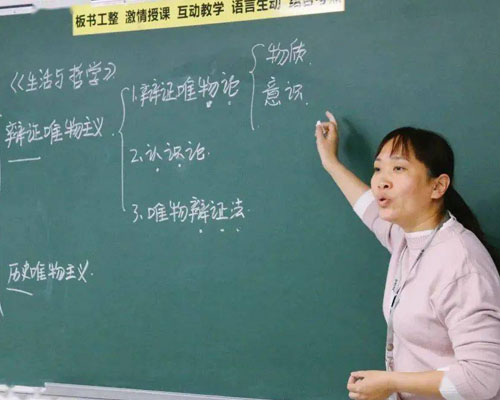 板书工整 激情授课 互动教学 语言生动
《生活与哲学》
辩证唯物主义
1.辩证唯物论
物质.
意识.
2.认识论.
3.唯物辩证法.
历史唯物主义.